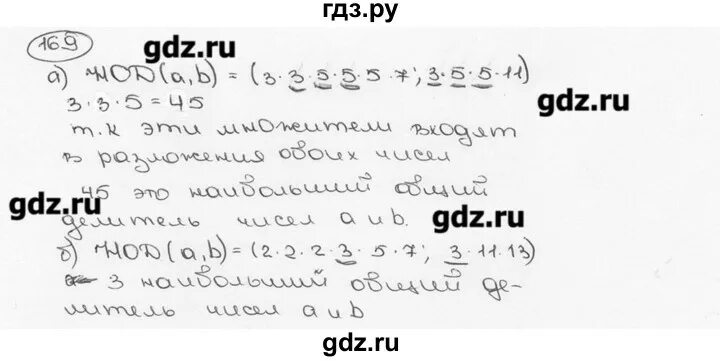 гдз.ру
169
gdz.ru
gdz.ru
а) НОD(a,b) = (3·3·5·5·5·7; 3·5·5·11)
3·3·5 = 45
gdz.ru
т.к эти множители входят
в разложения обоих чисел
45 это наибольший общий
gdz.ru
gdz.ru
делитель чисел a и b.
б) НОD(a,b) = (2·2·2·3·5·7; 3·11·13)
3 наибольший общий де-
литель чисел a и b
gdz.ru